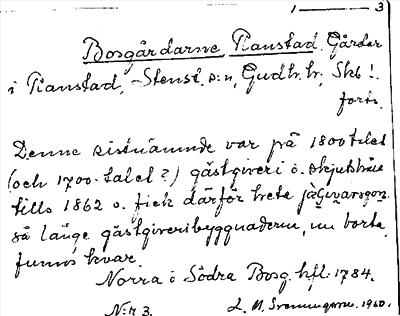 1 — 3
Bosgårdarne Ranstad. Gårdar
i Ranstad, -Stenst. s:n, Gudh. hr, Skb!.
forts.
Denne sistnämnde var på 1800 talet
(och 1700-talet?) gästgiveri o. skjutshåll
tills 1862 o. fick därför heta
så länge gästgiveribyggnaderna, nu borta,
funnos kvar.
Norra o Södra Bosg. hfl. 1784.
N:r 3.
1960.